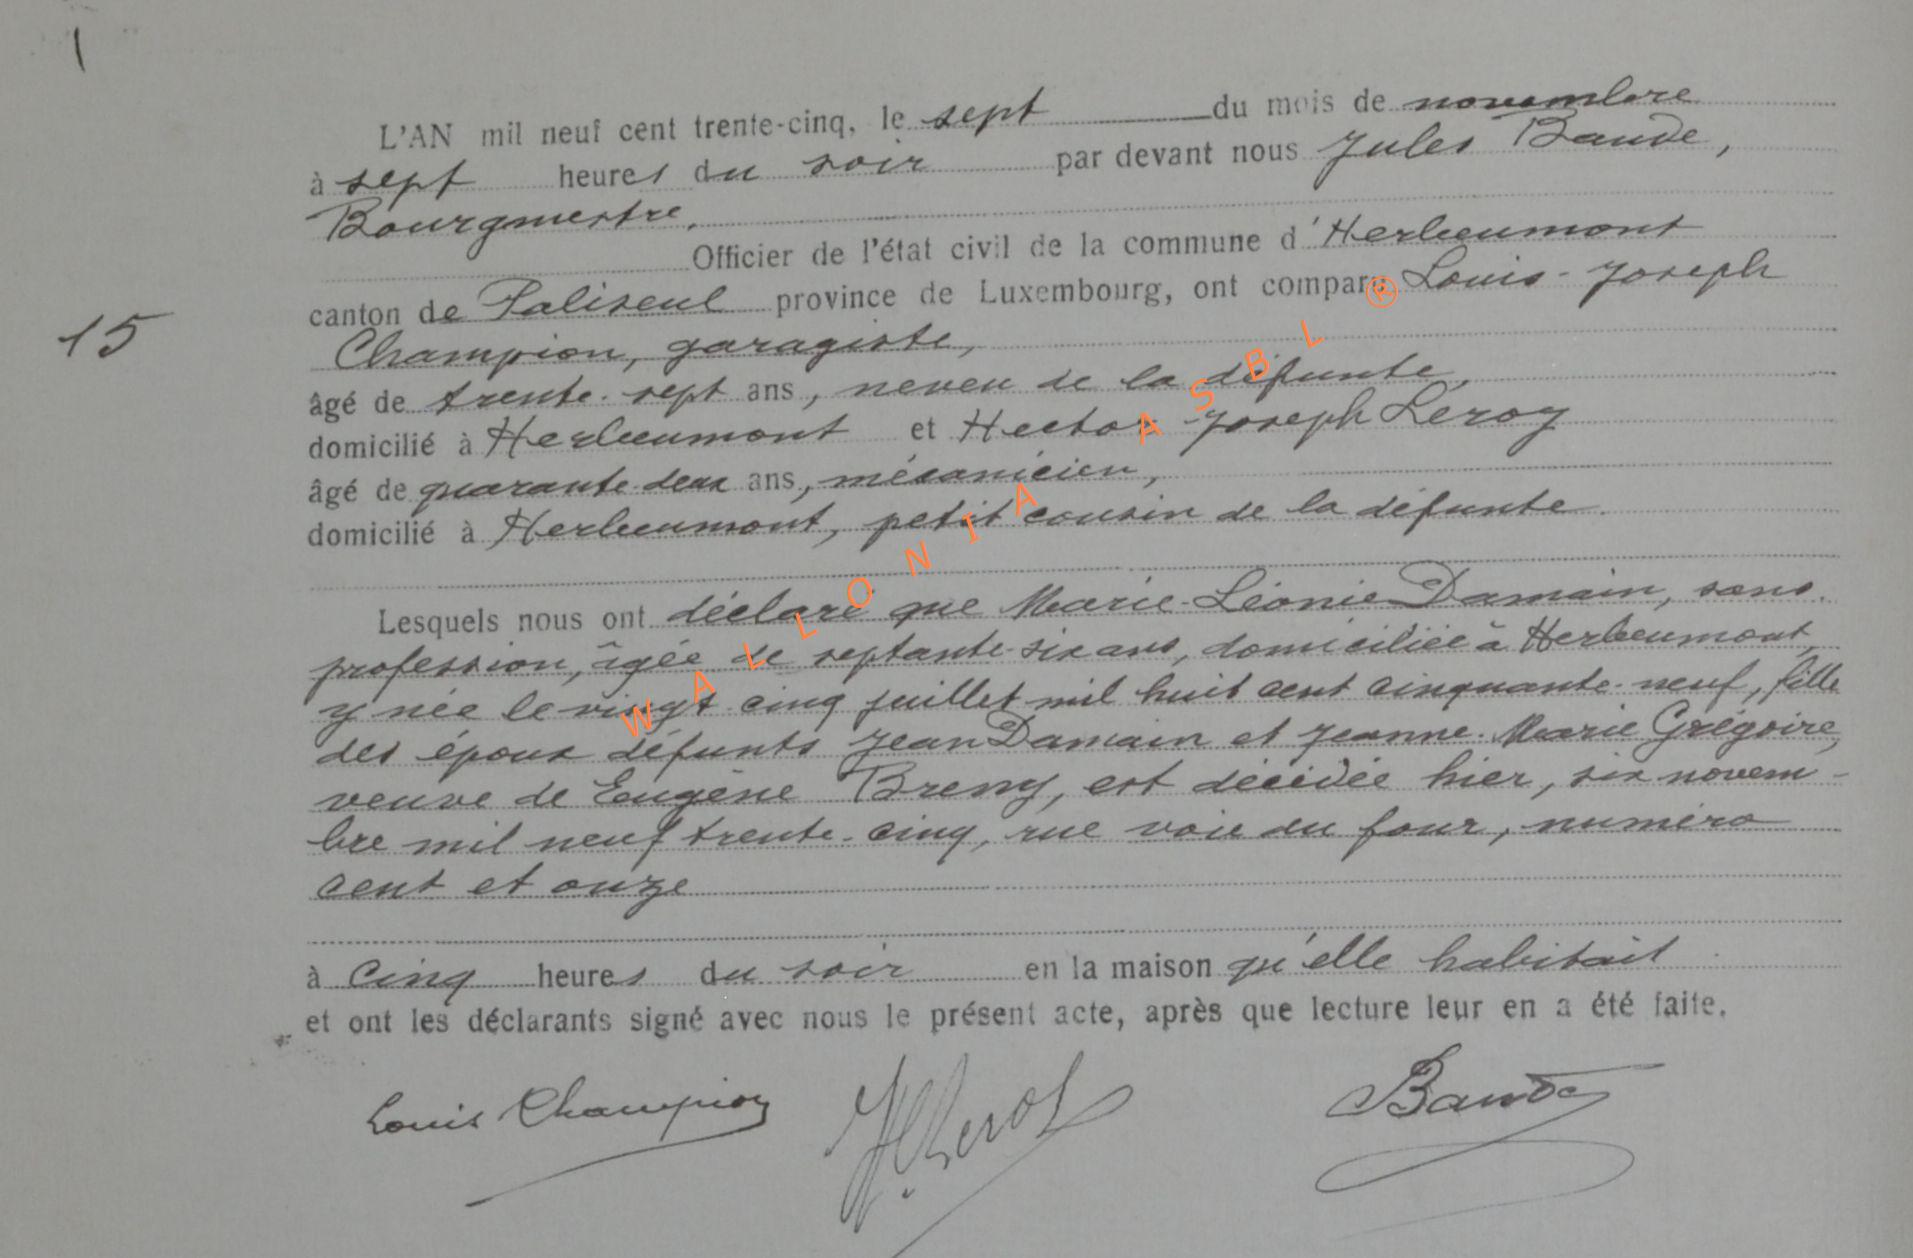 L'AN mil neuf cent trente-cinq, le sept du mois de novembre
à sept heures du soir par devant nous Jules Baude,
Bourgmestre,
Officier de l'état civil de la commune d'Herbeumont
canton de Paliseul province de Luxembourg, ont comparu Louis-Joseph
Champion, garagiste,
15
âgé de trente-sept ans, neveu de la défunte,
domicilié à Herbeumont et Hector Joseph Leroy
âgé de quarante-deux ans, mécanicien,
domicilié à Herbeumont, petit cousin de la défunte.
Lesquels nous ont déclaré que Marie-Léonie Damain, sans
profession, âgée de septante-six ans, domiciliée à Herbeumont,
y née le vingt cinq juillet mil huit cent cinquante-neuf, fille
des époux défunts Jean Damain et Jeanne-Marie Grégoire,
veuve de Eugène Breny, est décédée hier, six novem-
bre mil neuf trente-cinq, rue voie du four, numéro
cent et onze
à cinq heures du soir en la maison qu'elle habitait
et ont les déclarants signé avec nous le présent acte, après que lecture leur en a été faite.
Louis Champion HLeroy Baude
WALLONIA ASBL ®